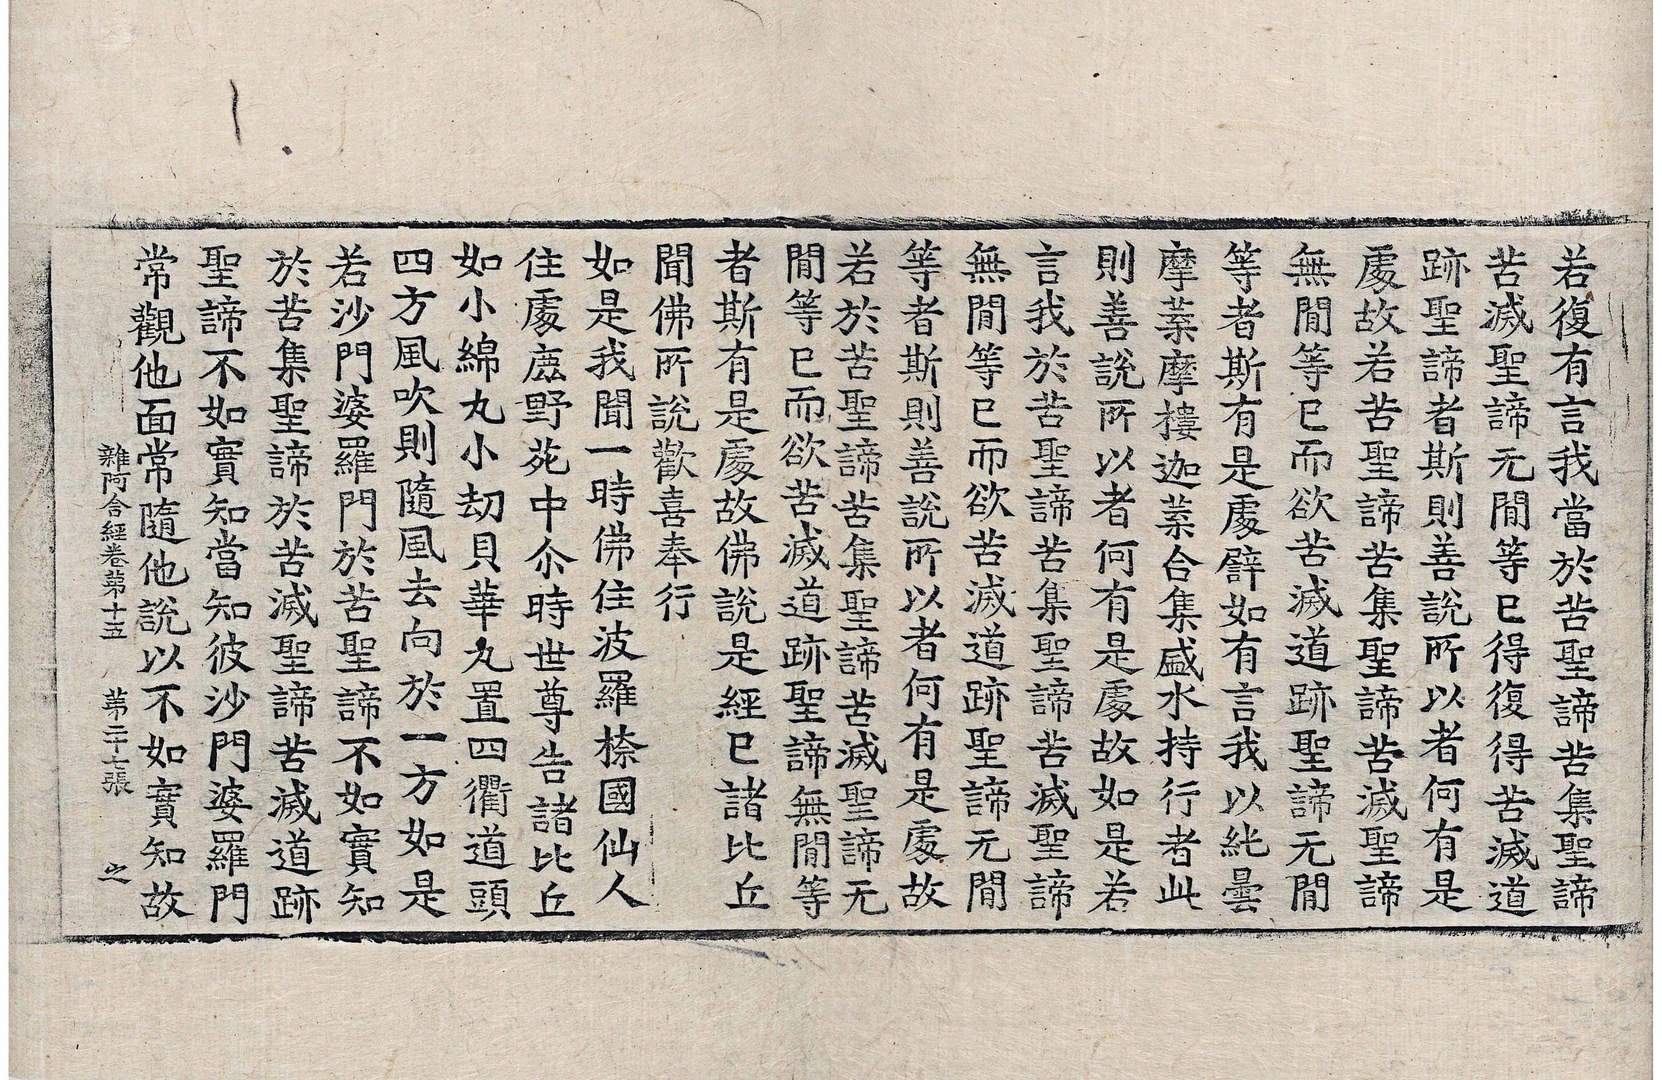 若復有言我當於苦聖諦苦集聖諦
苦滅聖諦无閒等已得復得苦滅道
跡聖諦者斯則善說所以者何有是
處故若苦聖諦苦集聖諦苦滅聖諦
無閒等已而欲苦滅道跡聖諦无閒
等者斯有是處譬如有言我以純曇
摩葉摩樓迦葉合集盛水持行者此
則善說所以者何有是處故如是若
言我於苦聖諦苦集聖諦苦滅聖諦
無閒等已而欲苦滅道跡聖諦无閒
等者斯則善說所以者何有是處故
若於苦聖諦苦集聖諦苦滅聖諦无
閒等已而欲苦滅道跡聖諦無閒等
者斯有是處故佛說是經已諸比丘
聞佛所說歡喜奉行
如是我聞一時佛住波羅㮈國仙人
住處鹿野苑中尒時世尊告諸比丘
如小綿丸小劫貝華丸置四衢道頭
四方風吹則隨風去向於一方如是
若沙門婆羅門於苦聖諦不如實知
於苦集聖諦於苦滅聖諦苦滅道跡
聖諦不如實知當知彼沙門婆羅門
常觀他面常隨他說以不如實知故
雜阿含經卷苐十五 苐二十七張 之